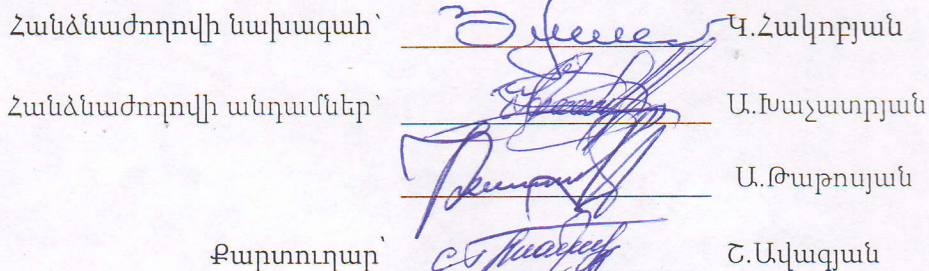 Հանձնաժողովի նախագահ՝ Կ.Հակոբյան
Հանձնաժողովի անդամներ՝ Ա.Խաչատրյան
Ա.Թաթոսյան
Քարտուղար՝ Շ.Ավագյան